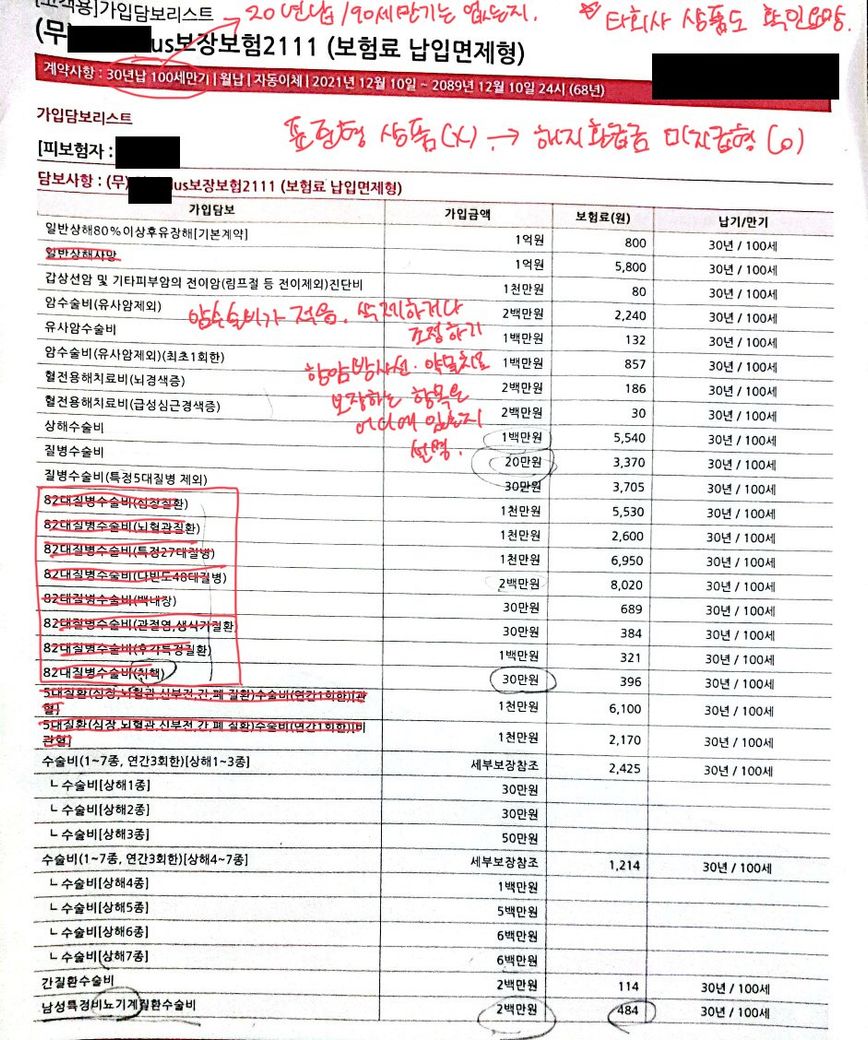 [고객용]가입담보리스트
20년납/90세만기는 없는지.
☆ 타회사 상품도 확인요망.
(무) us보장보험2111 (보험료 납입면제형)
계약사항 : 30년납 100세만기 | 월납 | 자동이체 | 2021년 12월 10일 ~ 2089년 12월 10일 24시 (68년)
가입담보리스트
표준형 상품(X) → 해지환급금 미지급형 (o)
[피보험자 :
담보사항 : (무) us보장보험2111 (보험료 납입면제형)
가입담보 가입금액 보험료(원) 납기/만기
일반상해80%이상후유장해[기본계약] 1억원 800 30년 / 100세
일반상해사망 1억원 5,800 30년 / 100세
갑상선암 및 기타피부암의 전이암(림프절 등 전이제외)진단비 1천만원 80 30년 / 100세
암수술비(유사암제외) 2백만원 2,240 30년 / 100세
암수술비가 적음. 삭제하거나
조정하기
유사암수술비 1백만원 132 30년 / 100세
암수술비(유사암제외)(최초1회한) 1백만원 857 30년 / 100세
항암방사선·약물치료
보장하는 항목은
어디에 있는지
설명.
혈전용해치료비(뇌경색증) 2백만원 186 30년 / 100세
혈전용해치료비(급성심근경색증) 2백만원 30 30년 / 100세
상해수술비 1백만원 5,540 30년 / 100세
질병수술비 20만원 3,370 30년 / 100세
질병수술비(특정5대질병 제외) 30만원 3,705 30년 / 100세
82대질병수술비(심장질환) 1천만원 5,530 30년 / 100세
82대질병수술비(뇌혈관질환) 1천만원 2,600 30년 / 100세
82대질병수술비(특정27대질병) 1천만원 6,950 30년 / 100세
82대질병수술비(다빈도48대질병) 2백만원 8,020 30년 / 100세
82대질병수술비(백내장) 30만원 689 30년 / 100세
82대질병수술비(관절염,생식기질환) 30만원 384 30년 / 100세
82대질병수술비(후각특정질환) 1백만원 321 30년 / 100세
82대질병수술비(치핵) 30만원 396 30년 / 100세
5대질환(심장,뇌혈관,신부전,간,폐 질환)수술비(연간1회한)[관
혈] 1천만원 6,100 30년 / 100세
5대질환(심장,뇌혈관,신부전,간,폐 질환)수술비(연간1회한)[비
관혈] 1천만원 2,170 30년 / 100세
수술비(1~7종, 연간3회한)[상해1~3종] 세부보장참조 2,425 30년 / 100세
ㄴ 수술비[상해1종] 30만원
ㄴ 수술비[상해2종] 30만원
ㄴ 수술비[상해3종] 50만원
수술비(1~7종, 연간3회한)[상해4~7종] 세부보장참조 1,214 30년 / 100세
ㄴ 수술비[상해4종] 1백만원
ㄴ 수술비[상해5종] 5백만원
ㄴ 수술비[상해6종] 6백만원
ㄴ 수술비[상해7종] 6백만원
간질환수술비 2백만원 114 30년 / 100세
남성특정비뇨기계질환수술비 2백만원 484 30년 / 100세